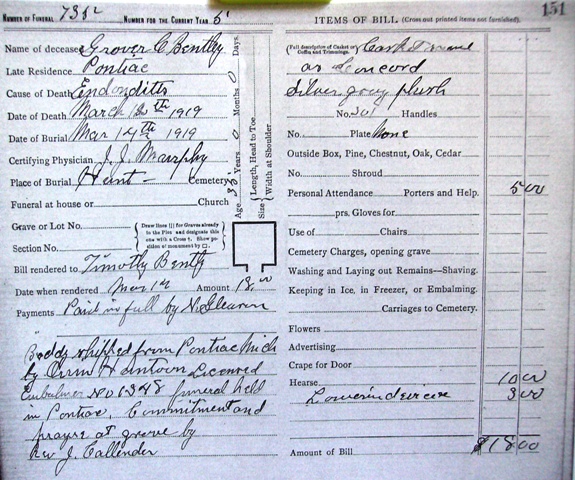 NUMBER OF FUNERAL 7352 NUMBER FOR THE CURRENT YEAR 5
Name of deceased Grover C Bentley
Late Residence Pontiac
Cause of Death Endocarditis
Date of Death March 12th 1919
Date of Burial Mar 14th 1919
Certifying Physician J. J. Murphy
Place of Burial Hunt — Cemetery
Funeral at house or Church
Grave or Lot No.
Section No.
Draw lines [|] for Graves already
in the Plot and designate this
one with a Cross †. Show po-
sition of monument by □.
Bill rendered to Timothy Bently
Date when rendered Mar 12 Amount 18.00
Payments Paid in full by
Body shipped from Pontiac Mich
by Licensed
Embalmer No 1348 funeral held
in Pontiac. Committment and
prayse at grave by
Rev J. Callender
Age 35 Years 0 Months 0 Days.
Size { Length, Head to Toe
Width at Shoulder
ITEMS OF BILL. (Cross out printed items not furnished). 151
(Full description of Casket or
Coffin and Trimmings.
as Concord
Silver gray plush
No. 201 Handles
No. Plate None
Outside Box, Pine, Chestnut, Oak, Cedar
No. Shroud
Personal Attendance Porters and Help. 5 00
prs. Gloves for
Use of Chairs
Cemetery Charges, opening grave
Washing and Laying out Remains—Shaving.
Keeping in Ice, in Freezer, or Embalming.
Carriages to Cemetery.
Flowers
Advertising
Crape for Door
Hearse 10 00
3 00
Amount of Bill $18 00